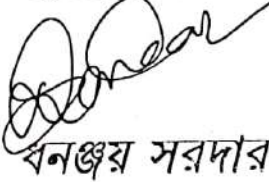 ধনঞ্জয় সরদার